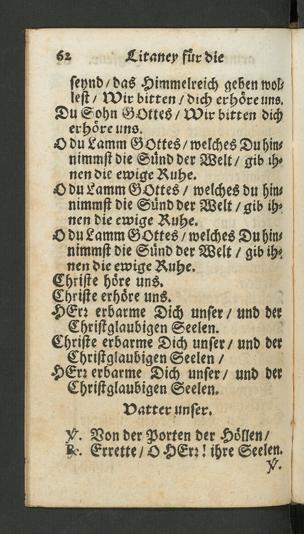 62 Litaney für die
seynd / das Himmelreich geben wol-
lest / Wir bitten / dich erhöre uns.
Du Sohn GOttes / Wir bitten dich
erhöre uns.
O du Lamm GOttes / welches Du hin-
nimmst die Sünd der Welt / gib ih-
nen die ewige Ruhe.
O du Lamm GOttes / welches du hin-
nimmst die Sünd der Welt / gib ih-
nen die ewige Ruhe.
O du Lamm GOttes / welches Du hin-
nimmst die Sünd der Welt / gib ih-
nen die ewige Ruhe.
Christe höre uns.
Christe erhöre uns.
HErr erbarme Dich unser / und der
Christglaubigen Seelen.
Christe erbarme Dich unser / und der
Christglaubigen Seelen /
HErr erbarme Dich unser / und der
Christglaubigen Seelen.
Vatter unser.
℣. Von der Porten der Höllen /
℟. Errette / O HErr! ihre Seelen.
℣.